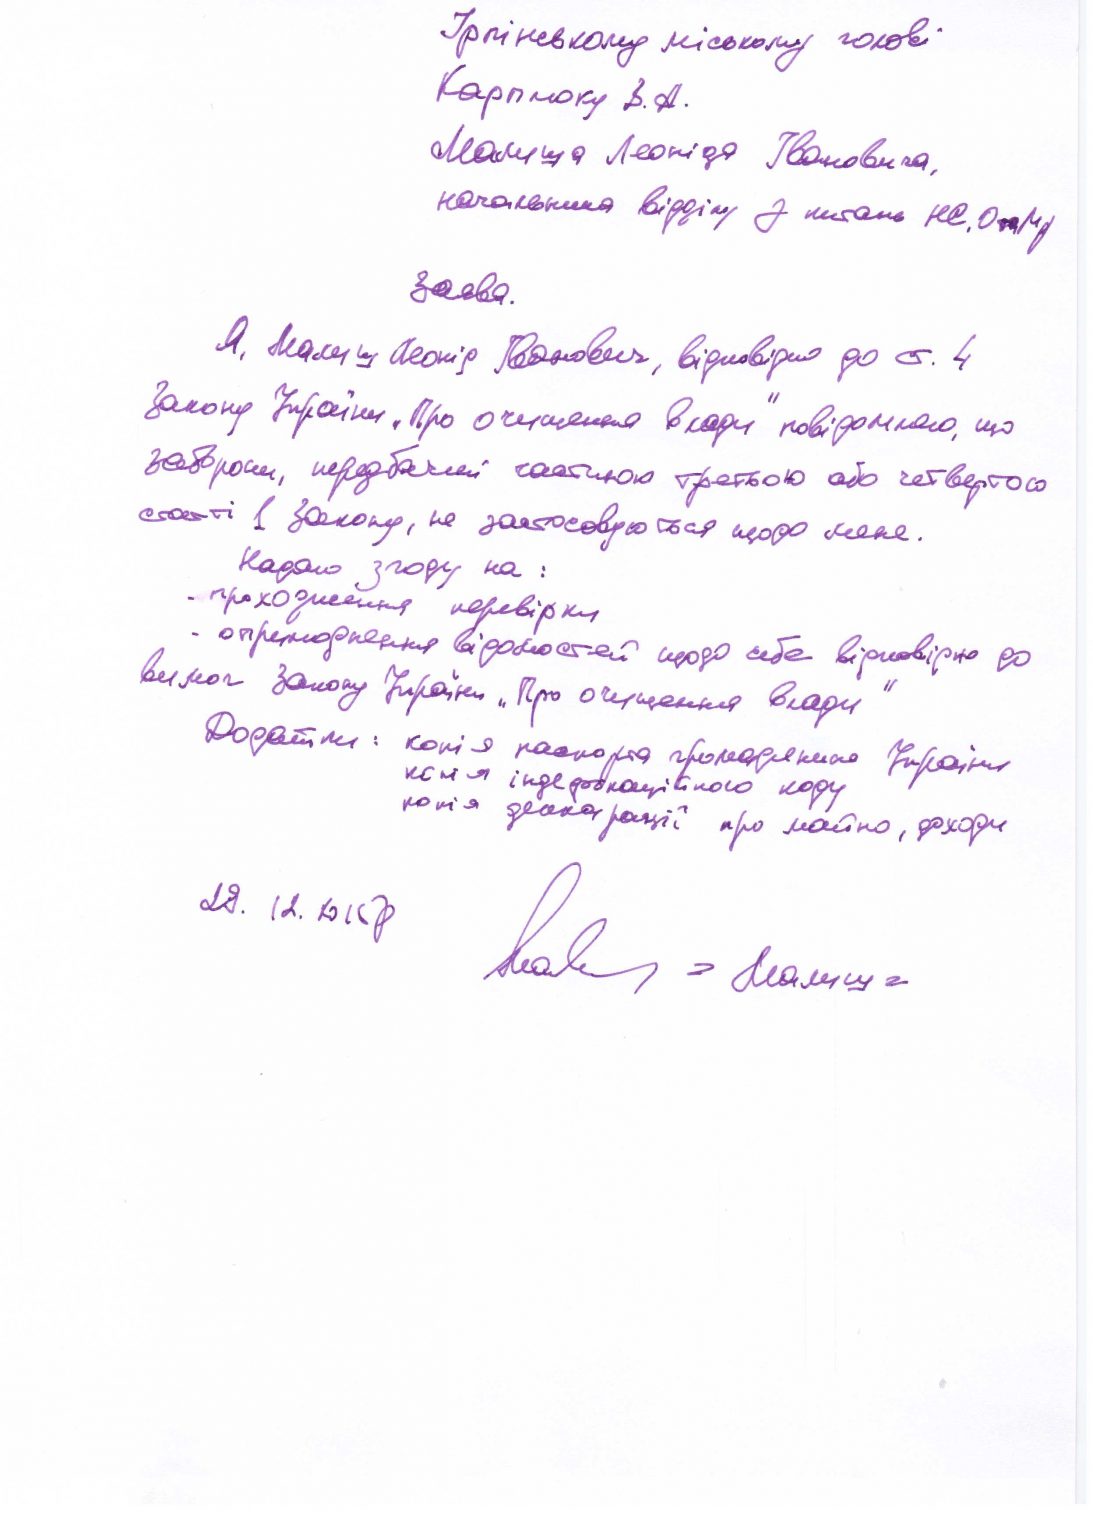 Ірпінському міському голові
Карплюку В.А.
Малища Леоніда Івановича,
начальника відділу з питань НС,
Заява.
Я, Малищ Леонід Іванович, відповідно до ст. 4
Закону України „Про очищення влади" повідомляю, що
заборони, передбачені частиною третьою або четвертою
статті 1 Закону, не застосовуються щодо мене.
Надаю згоду на:
- проходження перевірки
- оприлюднення відомостей щодо себе відповідно до
вимог Закону України „Про очищення влади"
Додатки: копія паспорта громадянина України
копія коду
копія декларації про майно, доходи
Малищ